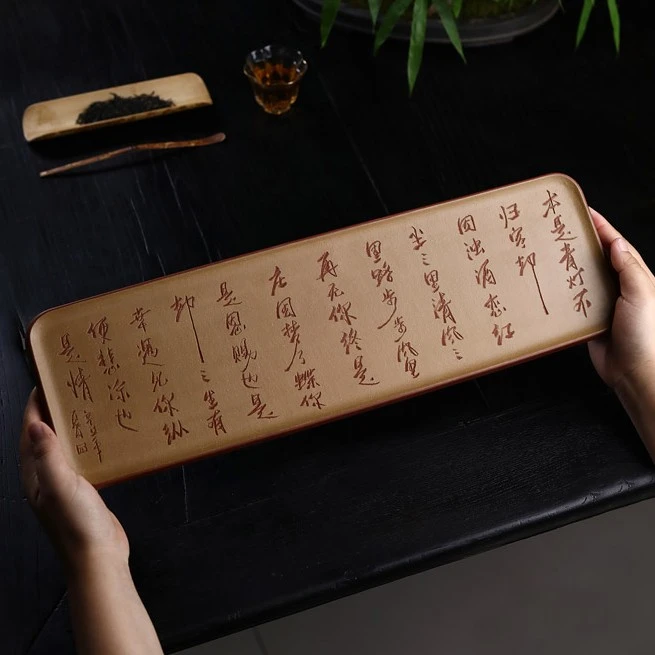 本是青灯不
归客却
因浊酒恋红
尘三里清风三
里路步步风里
再无你终是
庄周梦了蝶你
是恩赐也是
劫三生有
幸遇见你纵
使悲凉也
是情